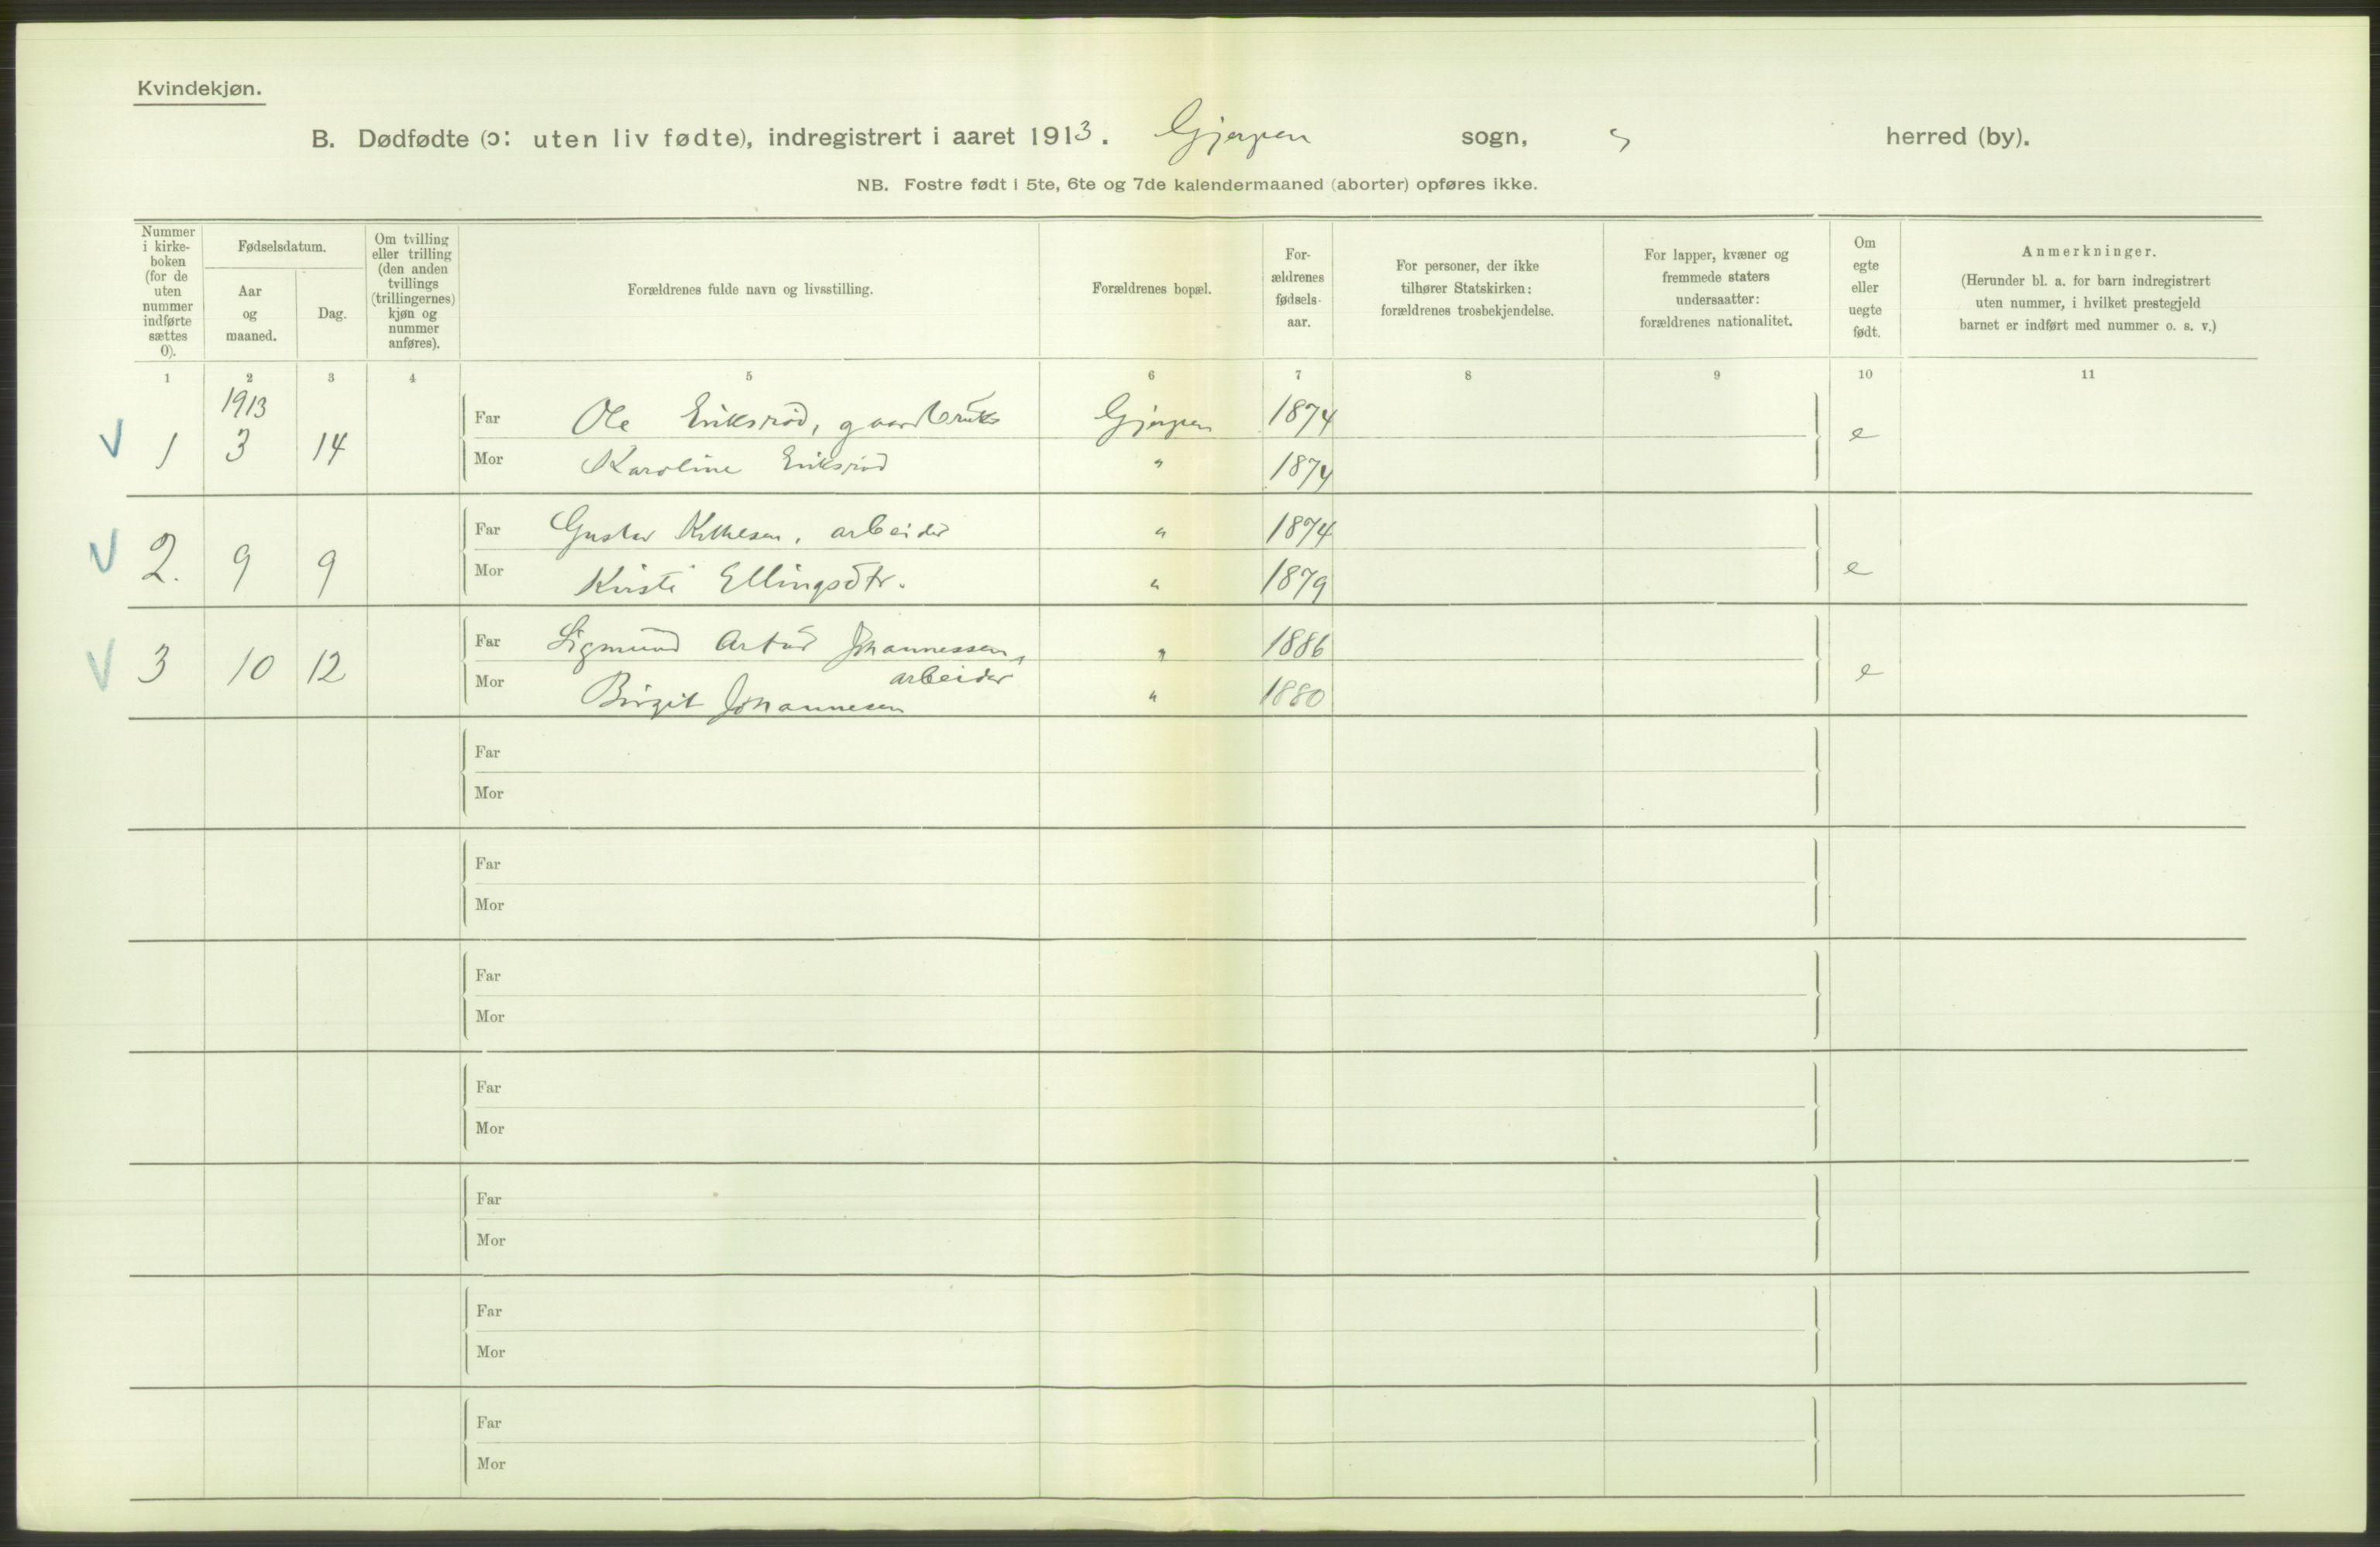 Kvindekjøn.
B. Dødfødte (ɔ: uten liv fødte), indregistrert i aaret 1913. Gjerpen sogn, " herred (by).
NB. Fostre født i 5te, 6te og 7de kalendermaaned (aborter) opføres ikke.
Nummer i kirke-boken (for de uten nummer indførte sættes 0).
Fødselsdatum.
Aar og maaned.
Dag.
Om tvilling eller trilling (den anden tvillings (trillingernes) kjøn og nummer anføres).
Forældrenes fulde navn og livsstilling.
Forældrenes bopæl.
For-ældrenes fødsels-aar.
For personer, der ikke tilhører Statskirken: forældrenes trosbekjendelse.
For lapper, kvæner og fremmede staters undersaatter: forældrenes nationalitet.
Om egte eller uegte født.
Anmerkninger.
(Herunder bl. a. for barn indregistrert uten nummer, i hvilket prestegjeld barnet er indført med nummer o. s. v.)
1 2 3 4 5 6 7 8 9 10 11
1913
V 1 3 14 Far Ole Eriksrød, gaardbruks Gjerpen 1874 e
Mor Karoline Eriksrød " 1874
V 2. 9 9 Far Gustav, arbeider " 1874 e
Mor Kirsti Ellingsdtr. " 1879
V 3 10 12 Far Sigmund Artur Johannessen, " 1886 e
arbeider
Mor Birgit Johannesen " 1880
Far
Mor
Far
Mor
Far
Mor
Far
Mor
Far
Mor
Far
Mor
Far
Mor